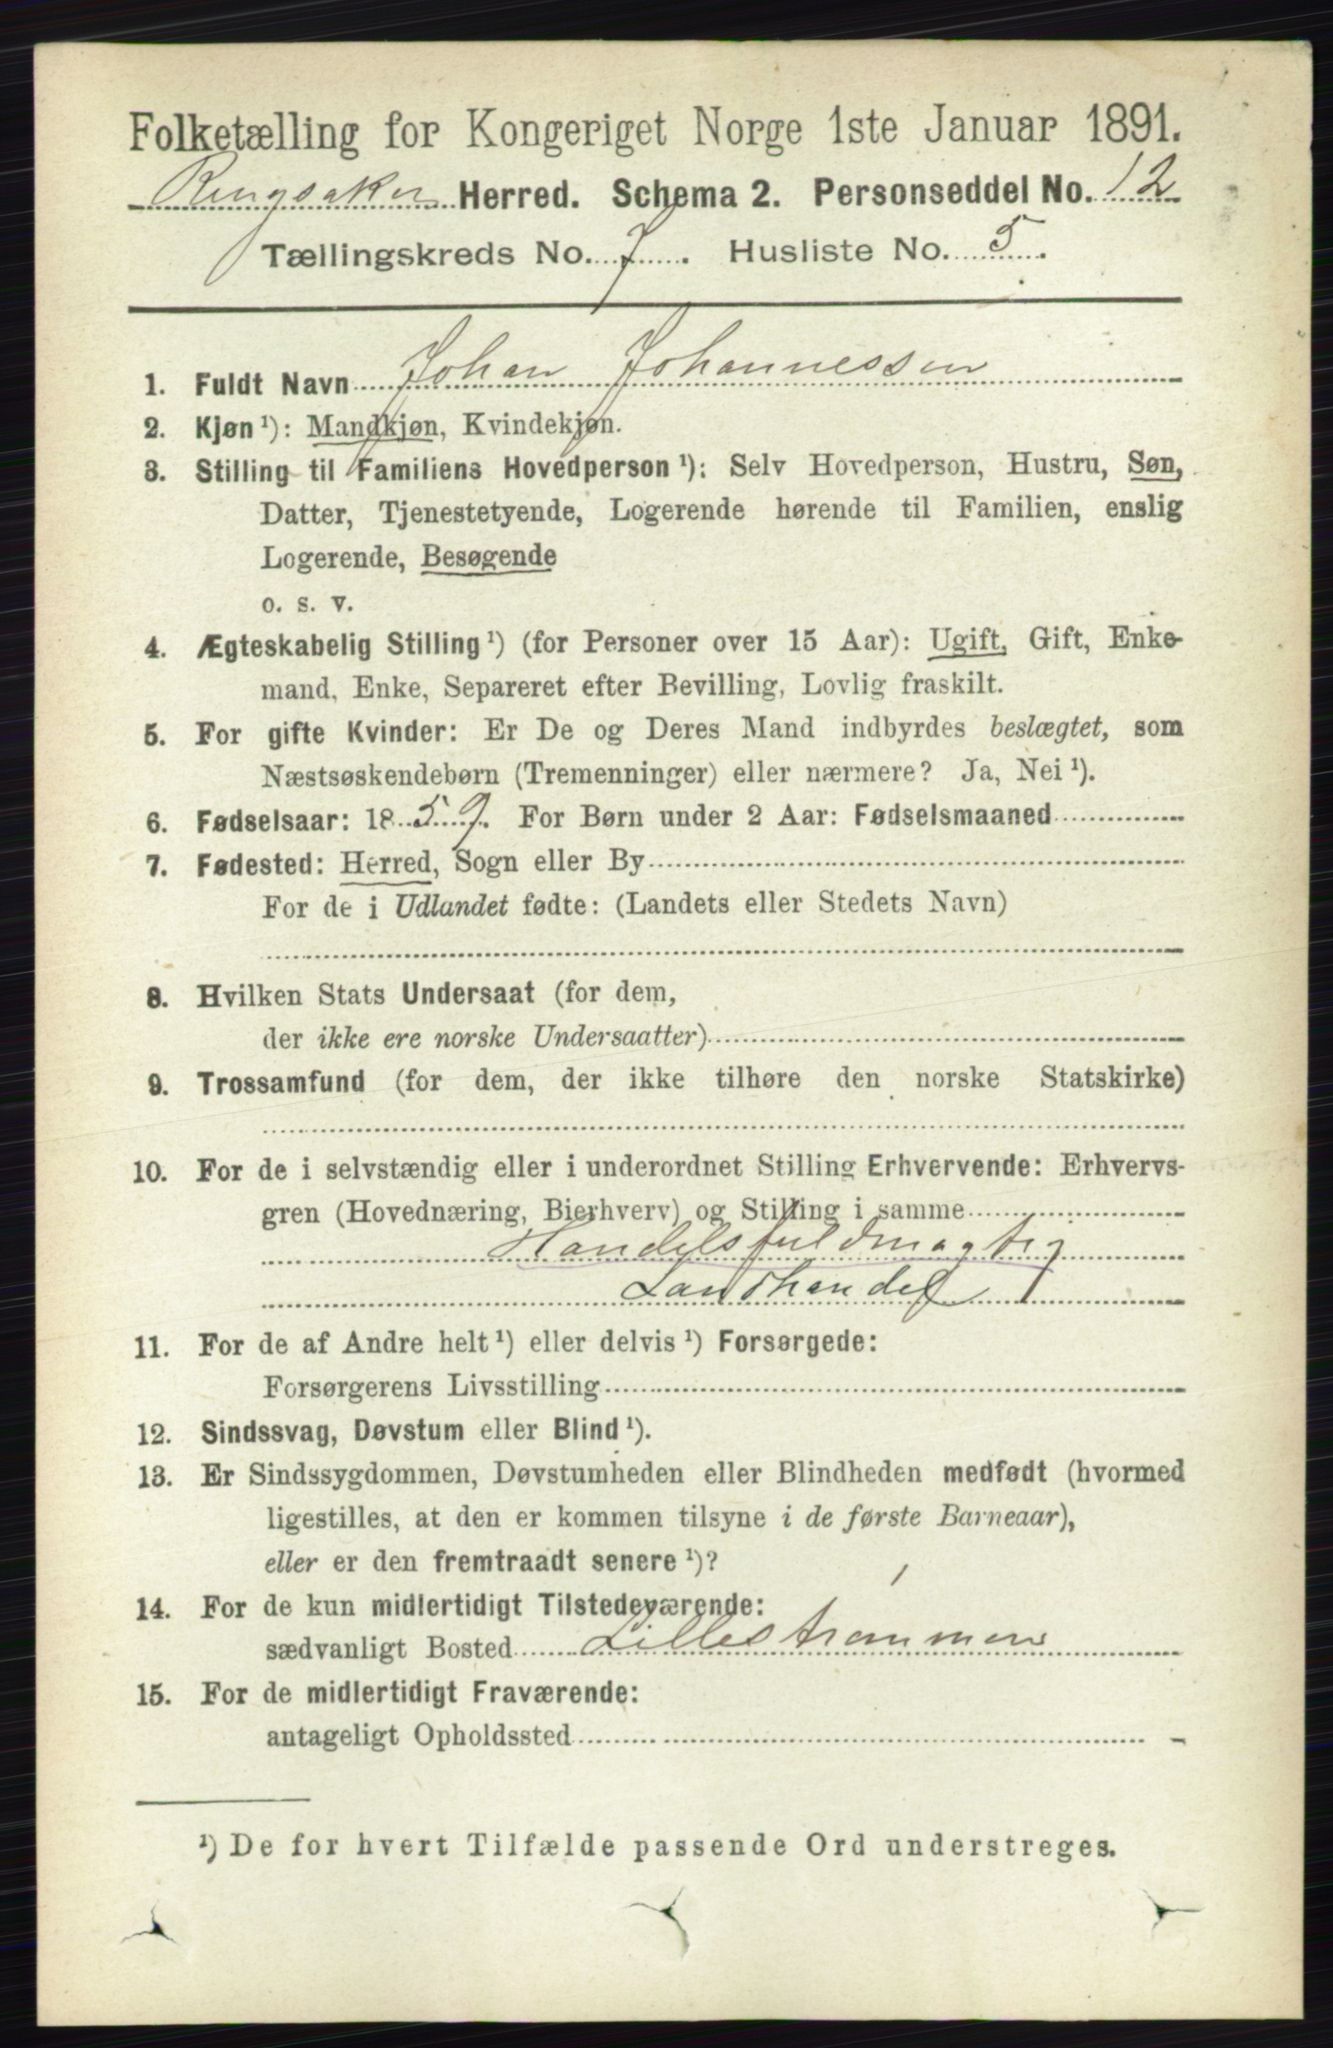 Folketælling for Kongeriget Norge 1ste Januar 1891.
Ringsaker Herred. Schema 2. Personseddel No. 12
Tællingskreds No. 7. Husliste No. 5.
1. Fuldt Navn Johan Johannessen
2. Kjøn ¹): Mandkjøn, Kvindekjøn.
3. Stilling til Familiens Hovedperson ¹): Selv Hovedperson, Hustru, Søn,
Datter, Tjenestetyende, Logerende hørende til Familien, enslig
Logerende, Besøgende
o. s. v.
4. Ægteskabelig Stilling ¹) (for Personer over 15 Aar): Ugift, Gift, Enke-
mand, Enke, Separeret efter Bevilling, Lovlig fraskilt.
5. For gifte Kvinder: Er De og Deres Mand indbyrdes beslægtet, som
Næstsøskendebørn (Tremenninger) eller nærmere? Ja, Nei ¹).
6. Fødselsaar: 1859. For Børn under 2 Aar: Fødselsmaaned
7. Fødested: Herred, Sogn eller By
For de i Udlandet fødte: (Landets eller Stedets Navn)
8. Hvilken Stats Undersaat (for dem,
der ikke ere norske Undersaatter)
9. Trossamfund (for dem, der ikke tilhøre den norske Statskirke)
10. For de i selvstændig eller i underordnet Stilling Erhvervende: Erhvervs-
gren (Hovednæring, Bierhverv) og Stilling i samme
Handelsfuldmagtig
Landhandel
11. For de af Andre helt ¹) eller delvis ¹) Forsørgede:
Forsørgerens Livsstilling
12. Sindssvag, Døvstum eller Blind ¹).
13. Er Sindssygdommen, Døvstumheden eller Blindheden medfødt (hvormed
ligestilles, at den er kommen tilsyne i de første Barneaar),
eller er den fremtraadt senere ¹)?
14. For de kun midlertidigt Tilstedeværende:
sædvanligt Bosted Lillestrømmen
15. For de midlertidigt Fraværende:
antageligt Opholdssted
¹) De for hvert Tilfælde passende Ord understreges.